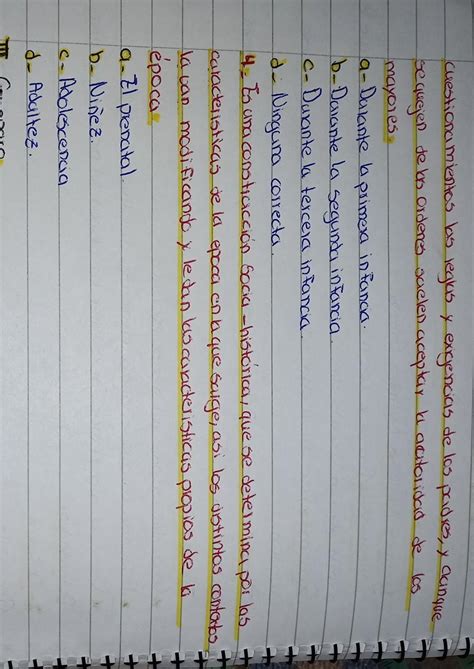 cuestionamientos las reglas y exigencias de los padres, y aunque
se quejen de las ordenes suelen aceptar la autoridad de los
mayores.
a- Durante la primera infancia.
b- Durante la segunda infancia.
c- Durante la tercera infancia.
d- Ninguna correcta.
4- Es una construcción socia-histórica, que se determina por las
características de la epoca en la que surge, asi los distintos contextos
la van modificando y le dan las características propias de la
época.
a- El prenatal.
b- Niñez.
c- Adolescencia
d- Adultez.
III